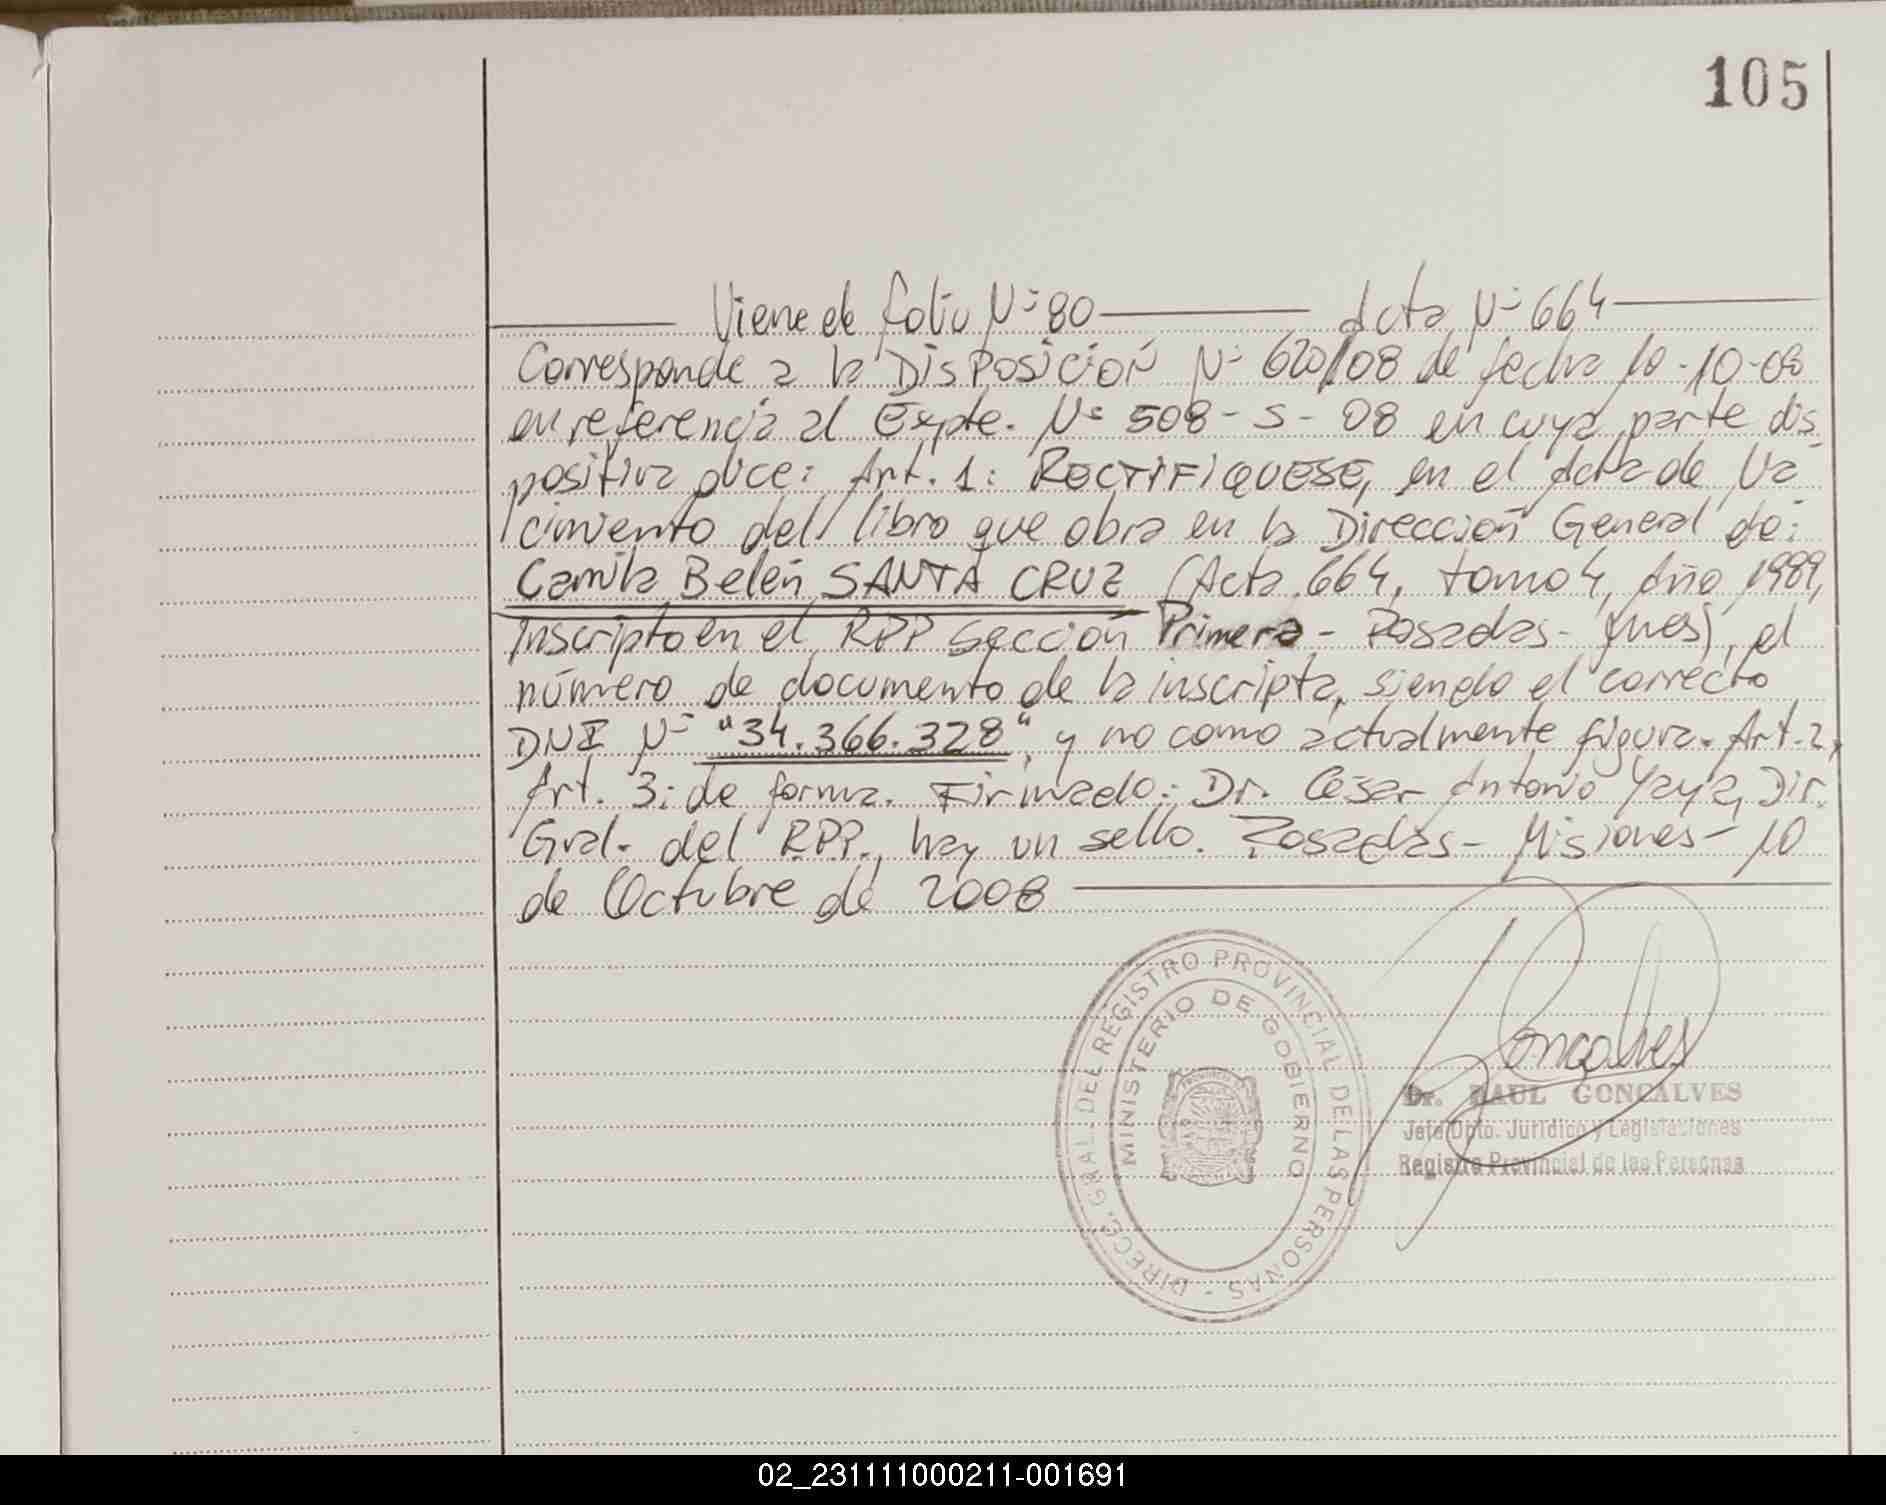 105
Viene de folio Nº 80 — Acta Nº 664
Corresponde a la DISPOSICIÓN Nº 620/08 de fecha 10-10-08
en referencia al Expte. Nº 508-S-08 en cuya parte dis
positiva dice: Art. 1: RECTIFIQUESE, en el Acta de Na
cimiento del libro que obra en la Dirección General de:
Camila Belén SANTA CRUZ (Acta 664, tomo 4, Año 1989,
inscripto en el RPP Sección Primera - Posadas - Mnes), el
número de documento de la inscripta, siendo el correcto
DNI Nº "34.366.328", y no como actualmente figura. Art. 2,
Art. 3: de forma. Firmado: Dr. César Antonio Yaya, Dir.
Gral. del RPP., hay un sello. Posadas - Misiones - 10
de Octubre de 2008
DIRECC. GRAL. DEL REGISTRO PROVINCIAL DE LAS PERSONAS -
MINISTERIO DE GOBIERNO
Goncalves
Dr. RAUL GONCALVES
Jefe Dpto. Jurídico y Legislaciones
Registro Provincial de las Personas
02_231111000211-001691